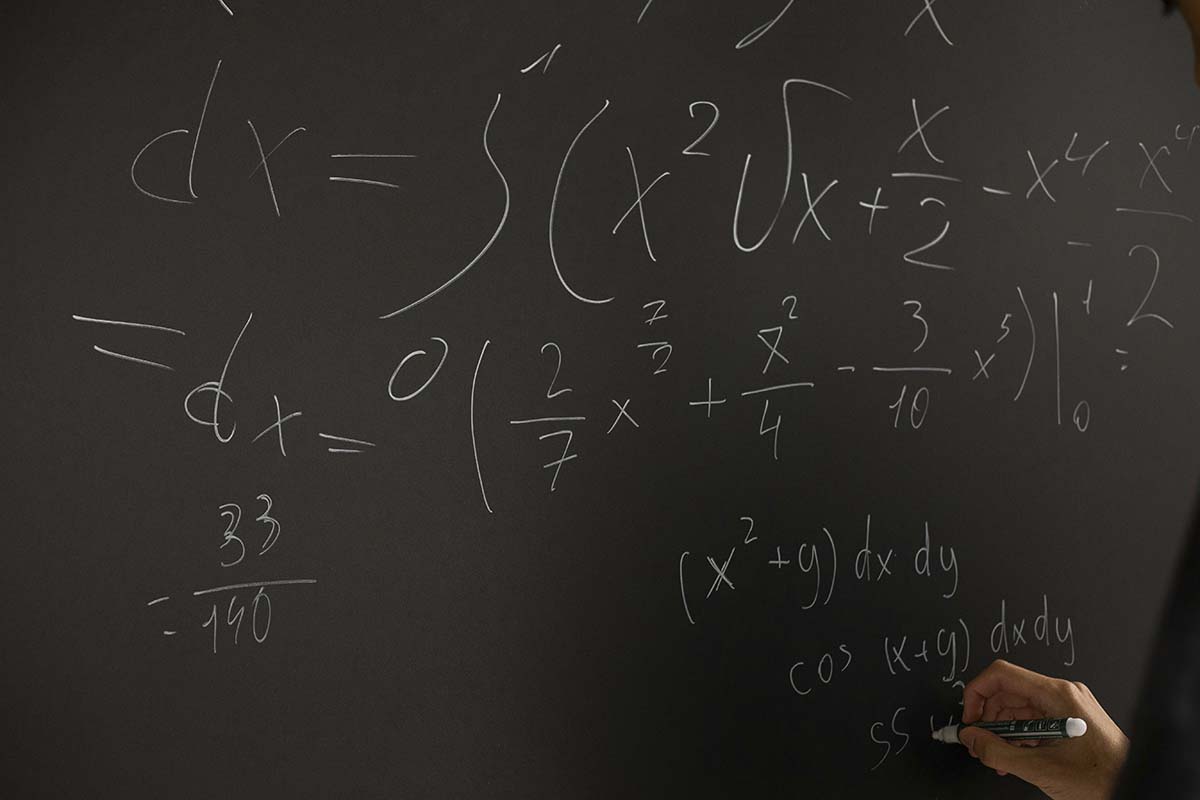 dx = ∫₀¹ (x²√x + x/2 - x⁴ - x⁴/2
= dx = (2/7 x^(7/2) + x²/4 - 3/10 x⁵)|₀¹ =
= 33/140
(x² + y) dx dy
cos (x+y) dxdy
SS